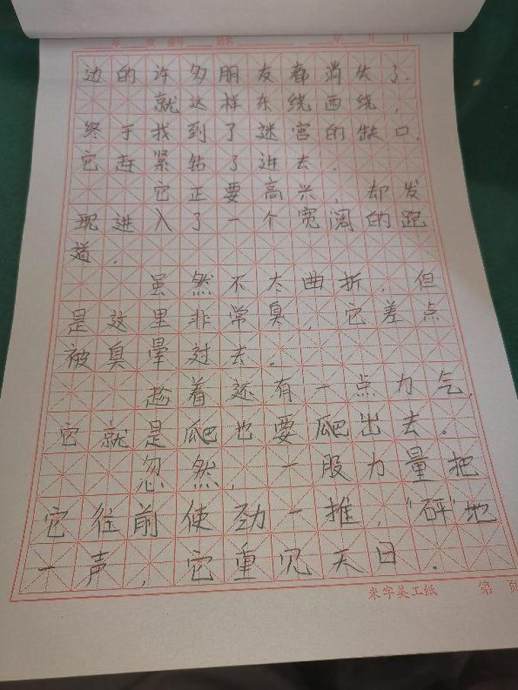 边的许多朋友都消失了.
就这样东绕西绕,
终于找到了迷宫的缺口.
它赶紧钻了进去.
它正要高兴,却发
现进入了一个宽阔的跑
道.
虽然不太曲折,但
是这里非常臭,它差点
被臭晕过去.
趁着还有一点力气,
它就是爬也要爬出去.
忽然,一股力量把
它往前使劲一推,“砰”地
一声,它重见天日.
米字美工纸 第 页